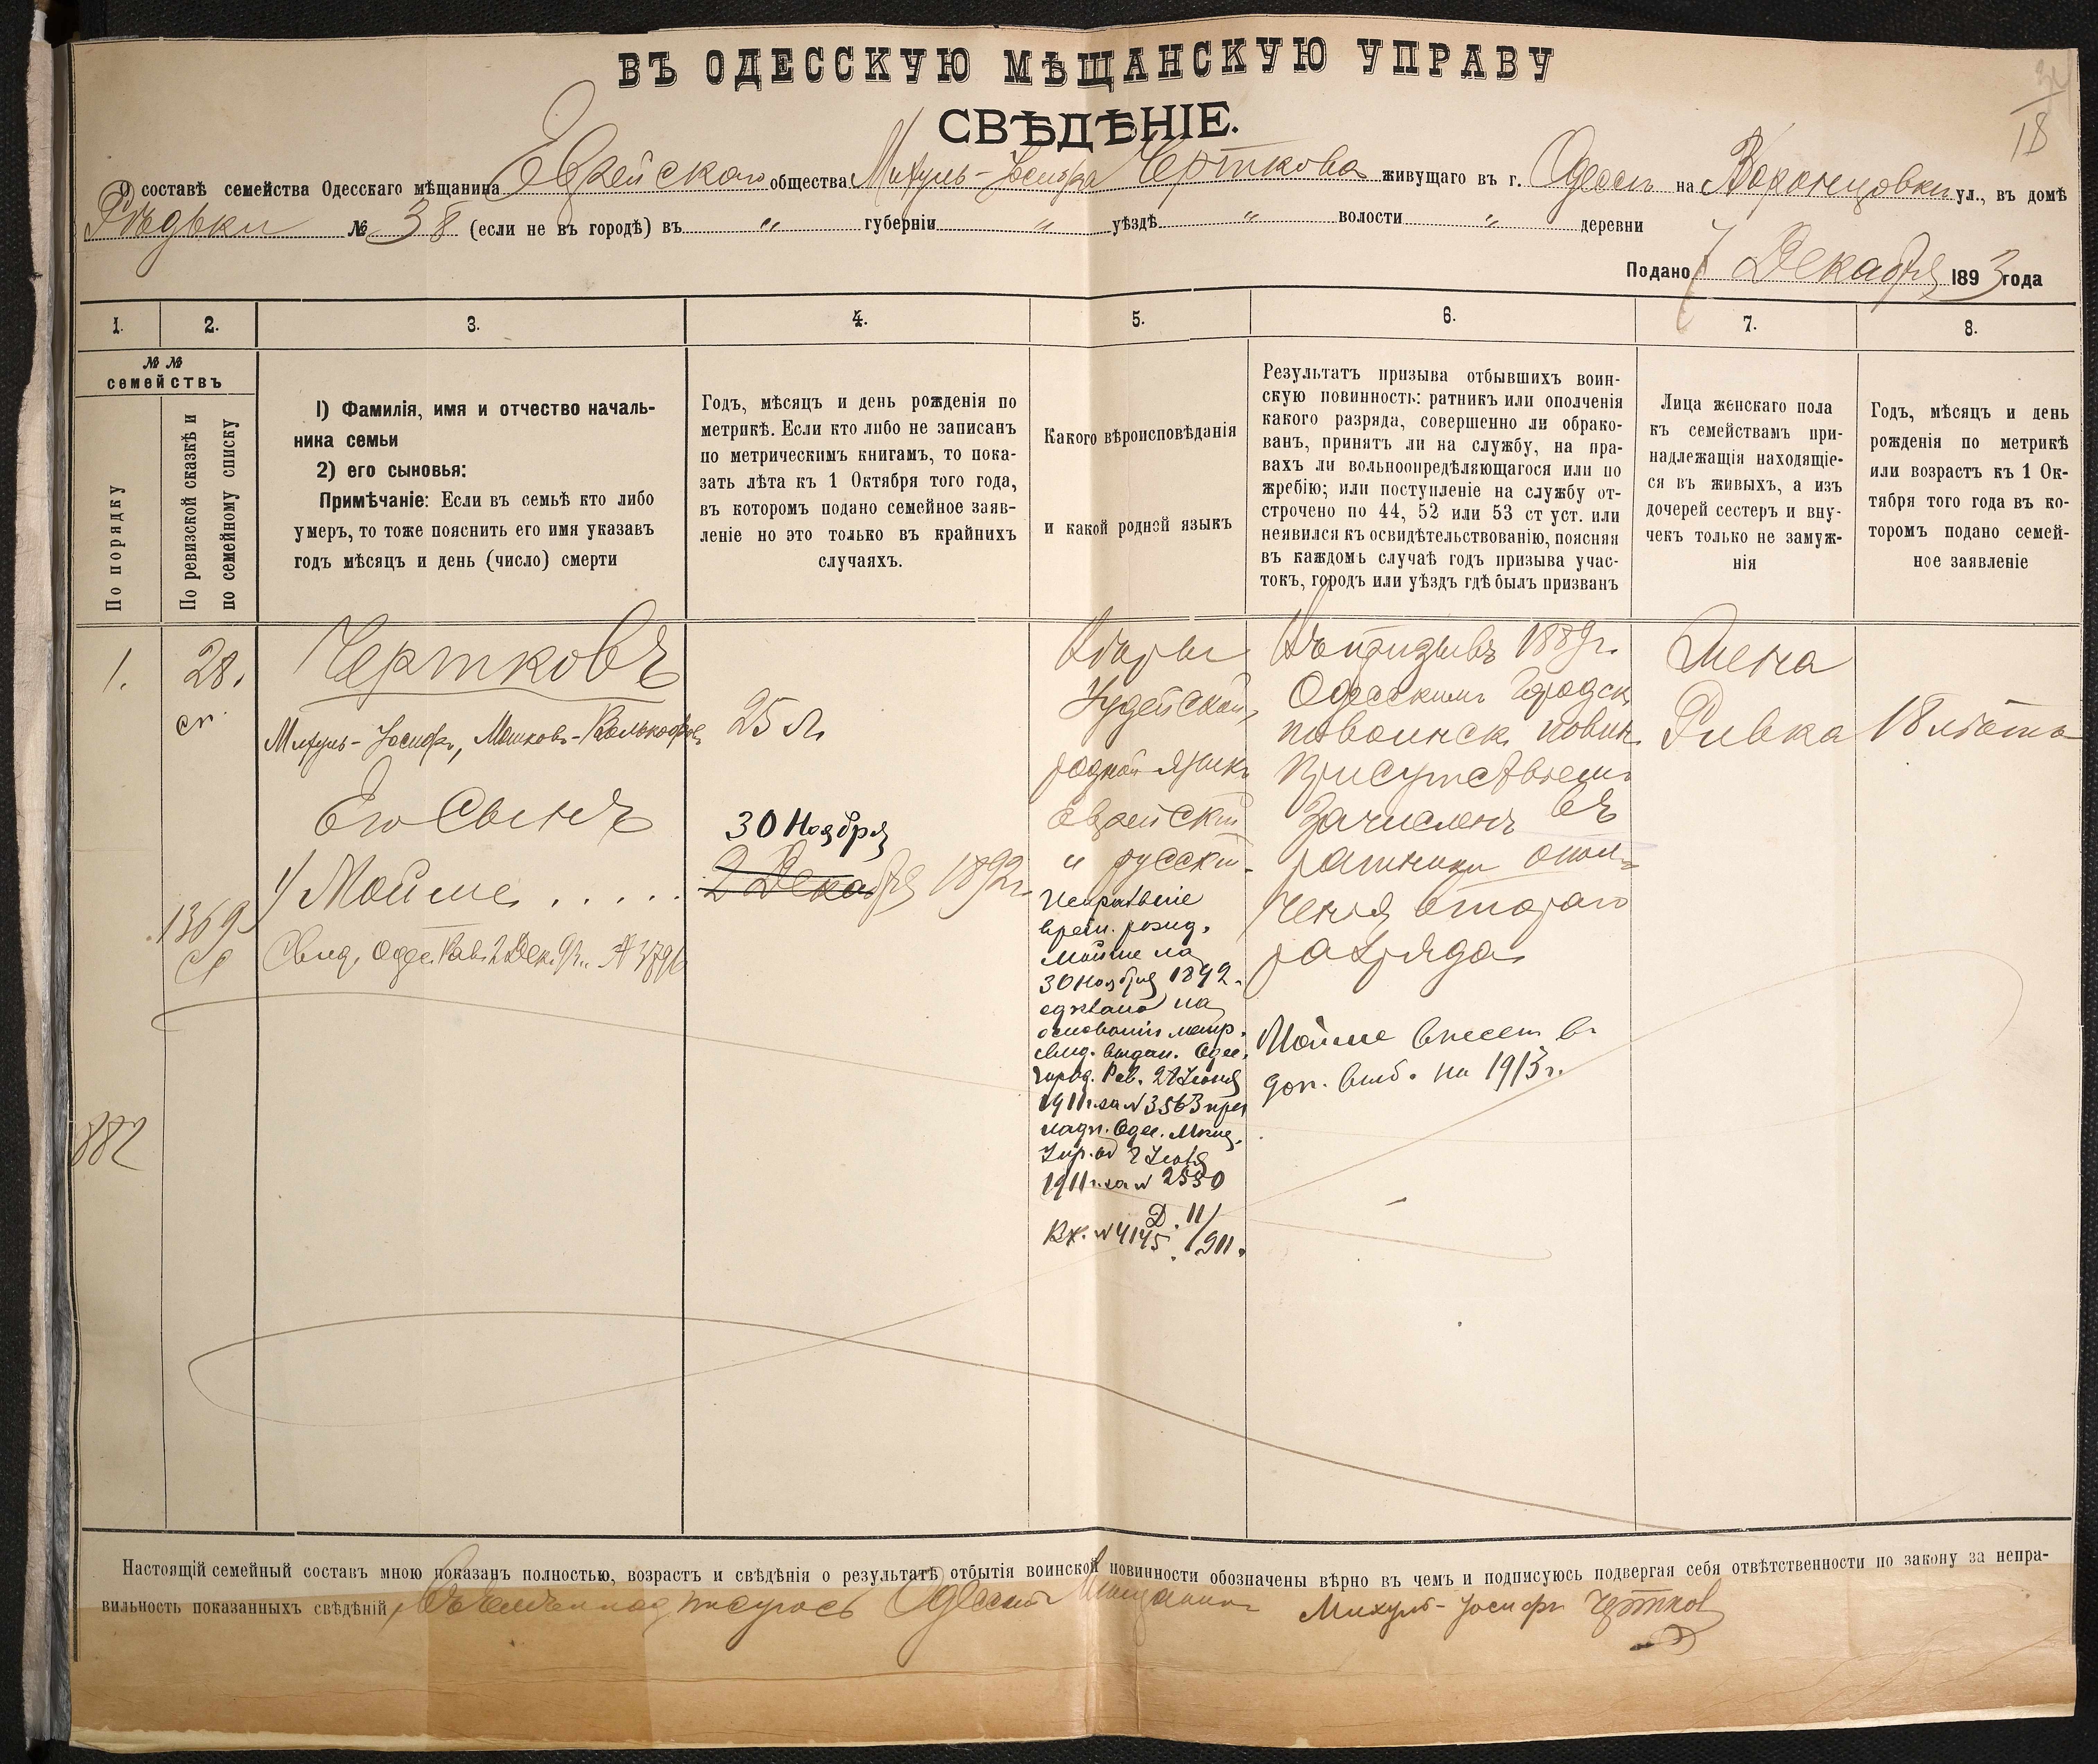 ВЪ ОДЕССКУЮ МѢЩАНСКУЮ УПРАВУ
СВѢДѢНІЕ.
18
О составѣ семейства Одесскаго мѣщанина Еврейскаго общества Михуль-Іосифа Черткова живущаго въ г. Одессѣ на Воронцовкѣ ул., въ домѣ
Рѣдьки № 38 (если не въ городѣ) въ " губерніи " уѣздѣ " волости " деревни
Подано 7 Декабря 1893 года
1. 2. 3. 4. 5. 6. 7. 8.
№ №
семействъ
По порядку
По ревизской сказкѣ и
по семейному списку
1) Фамилія, имя и отчество началь-
ника семьи
2) его сыновья:
Примѣчаніе: Если въ семьѣ кто либо
умеръ, то тоже пояснить его имя указавъ
годъ мѣсяцъ и день (число) смерти
Годъ, мѣсяцъ и день рожденія по
метрикѣ. Если кто либо не записанъ
по метрическимъ книгамъ, то пока-
зать лѣта къ 1 Октября того года,
въ которомъ подано семейное заяв-
леніе но это только въ крайнихъ
случаяхъ.
Какого вѣроисповѣданія
и какой родной языкъ
Результатъ призыва отбывшихъ воин-
скую повинность: ратникъ или ополченія
какого разряда, совершенно ли обрако-
ванъ, принятъ ли на службу, на пра-
вахъ ли вольноопредѣляющагося или по
жребію; или поступленіе на службу от-
строчено по 44, 52 или 53 ст уст. или
неявился къ освидѣтельствованію, поясняя
въ каждомъ случаѣ годъ призыва учас-
токъ, городъ или уѣздъ гдѣ былъ призванъ
Лица женскаго пола
къ семействамъ при-
надлежащія находящіе-
ся въ живыхъ, а изъ
дочерей сестеръ и вну-
чекъ только не замуж-
нія
Годъ, мѣсяцъ и день
рожденія по метрикѣ
или возрастъ къ 1 Ок-
тября того года въ ко-
торомъ подано семей-
ное заявленіе
1.
28.
сп.
1369
882
Чертковъ
Михуль-Іосифъ, Мошковъ-
Его Сынъ
1/ Мойше . . . . .
Свид. Одес. Рав. 2 Дек. 92 г. № 3796
25 л.
30 Ноября
2 Декабря 1892 г.
Вѣры
Іудейской,
родной языкъ
еврейскій
и русскій.
Исправленіе
врем. рожд.
Мойше на
30 Ноября 1892 г.
сдѣлано на
основаніи метр.
свид. выдан. Одес.
Город. Рав. 27 Іюня
1911 г. за № 3563 при
надп. Одес. Мѣщ.
Упр. от 2 Іюля
1911 г. за № 2550
Д. 11/
Вх. № 4145 1911.
Въ призывѣ 1889 г.
Одесскимъ Городск.
по воинск. повин.
Присутствіемъ
Зачисленъ въ
ратники опол-
ченія втораго
разряда
Мойше внесен в
доп. выб. на 1913 г.
Жена
Ривка
18 лѣтъ
Настоящій семейный составъ мною показанъ полностью, возрастъ и свѣдѣнія о результатѣ отбытія воинской повинности обозначены вѣрно въ чемъ и подписуюсь подвергая себя отвѣтственности по закону за непра-
вильность показанныхъ свѣдѣній, Въ чемъ и подписуюсь Одесскій Мещанинъ Михуль-Іосифъ Чертковъ